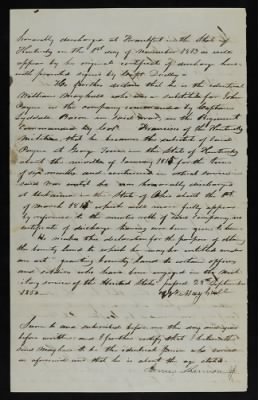 honorably discharged at Frankfort in the State of
Kentucky on the 1st day of November 1813 as will
appear by his original certificate of discharge here-
with presented signed by Capt
He further declares that he is the identical
William Mayhall who was a substitute for John
Payne in the company commanded by Captain
Bacon in the Regiment
Commanded by Col Francisco of the Kentucky
Militia, that he became the substitute of said
Payne at George Town in the State of Kentucky
about the middle of January 1815 for the term
of six months and continued in actual service in
said War until he was honorably discharged
at in the State of Ohio about the 1st
of March 1815 which will more fully appear
by reference to the muster rolls of said company, no
certificate of discharge having ever been given to him
He makes this declaration for the purpose of obtain
the bounty land to which he may be entitled under
an act granting bounty land to certain officers
and soldiers who have been engaged in the mili
tary service of the United States passed 28 September
1850. Wm Mayhall
Sworn to and subscribed before me the day and year
before written and I further certify that I believe the
said Mayhall to be the identical person who served
as aforesaid and that he is about the age stated
James Harrison